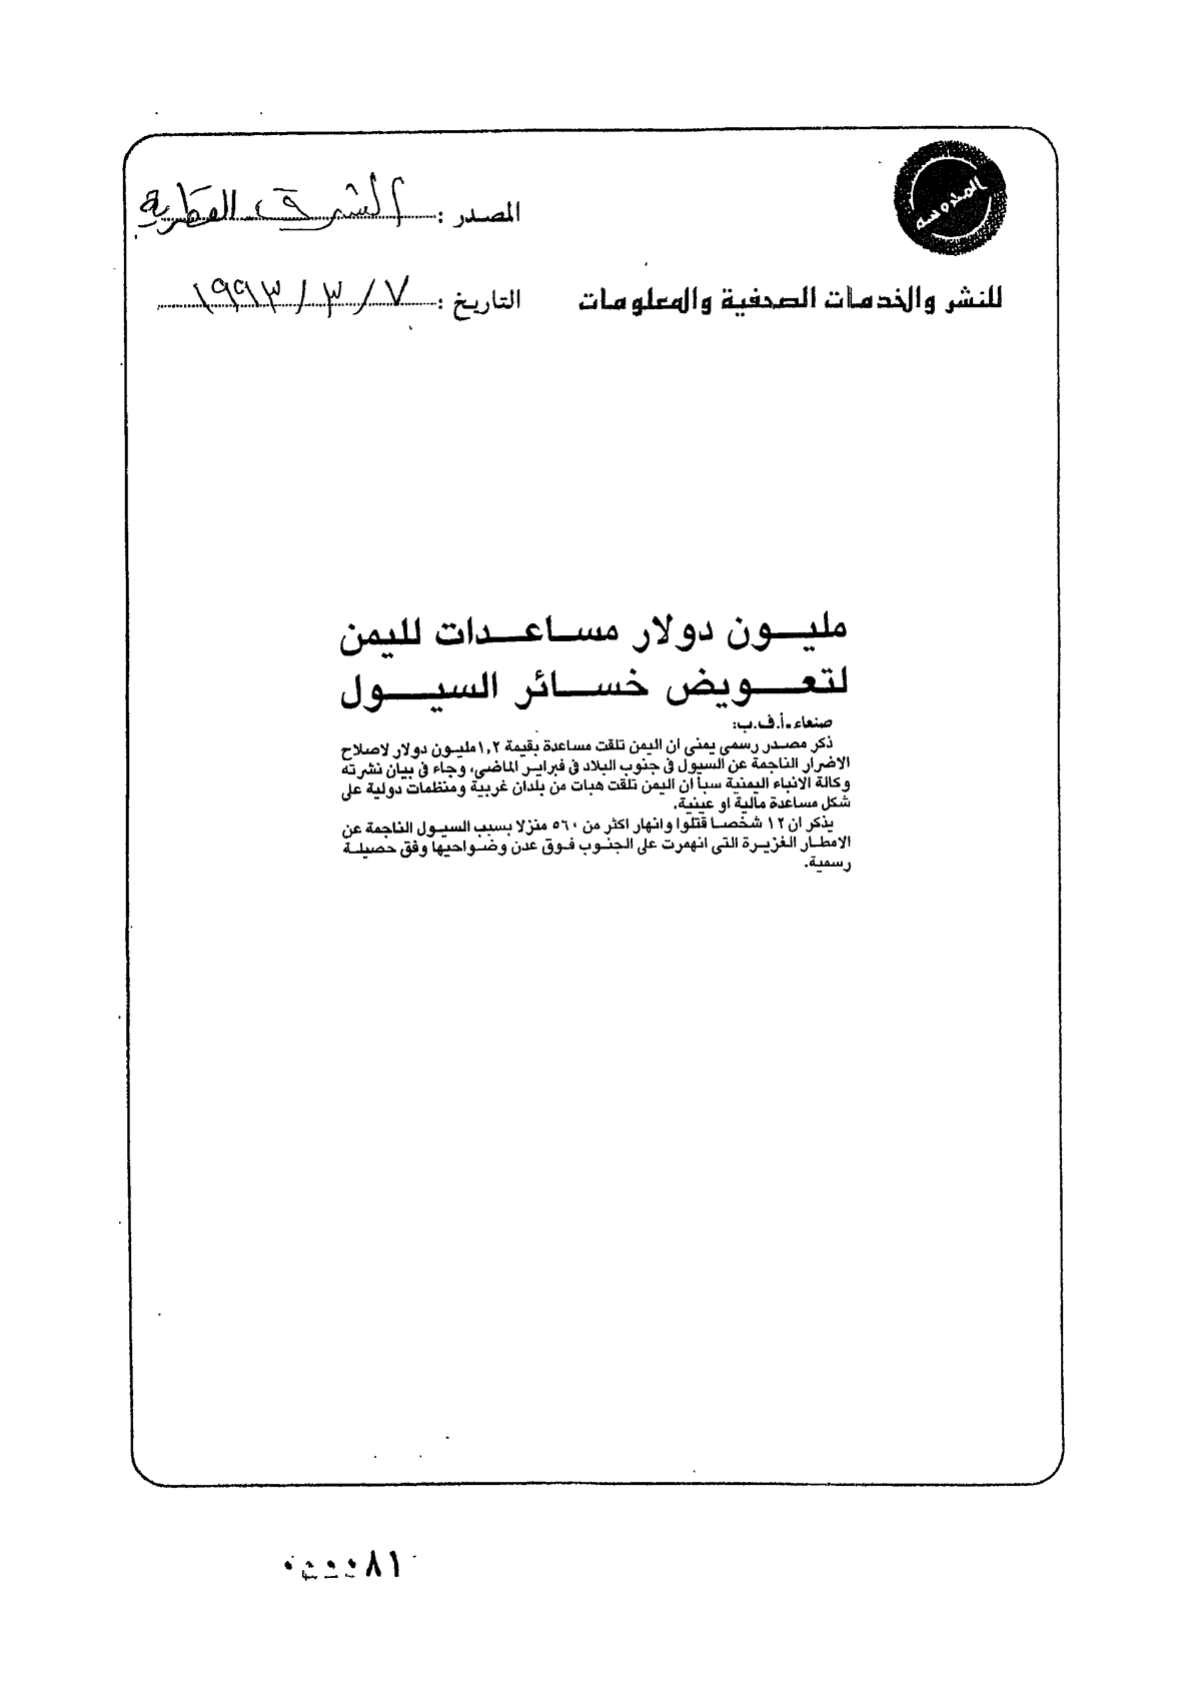 المصدر : الشرق القطرية
للنشر والخدمات الصحفية والمعلومات
التاريخ : ٧ / ٣ / ١٩٩٣
مليون دولار مساعدات لليمن
لتعويض خسائر السيول
صنعاء ـ أ. ف. ب:
ذكر مصدر رسمى يمنى ان اليمن تلقت مساعدة بقيمة ١,٢ مليون دولار لاصلاح
الاضرار الناجمة عن السيول فى جنوب البلاد فى فبراير الماضى، وجاء فى بيان نشرته
وكالة الانباء اليمنية سبأ ان اليمن تلقت هبات من بلدان غربية ومنظمات دولية على
شكل مساعدة مالية او عينية.
يذكر ان ١٢ شخصا قتلوا وانهار اكثر من ٥٦٠ منزلا بسبب السيول الناجمة عن
الامطار الغزيرة التى انهمرت على الجنوب فوق عدن وضواحيها وفق حصيلة
رسمية.